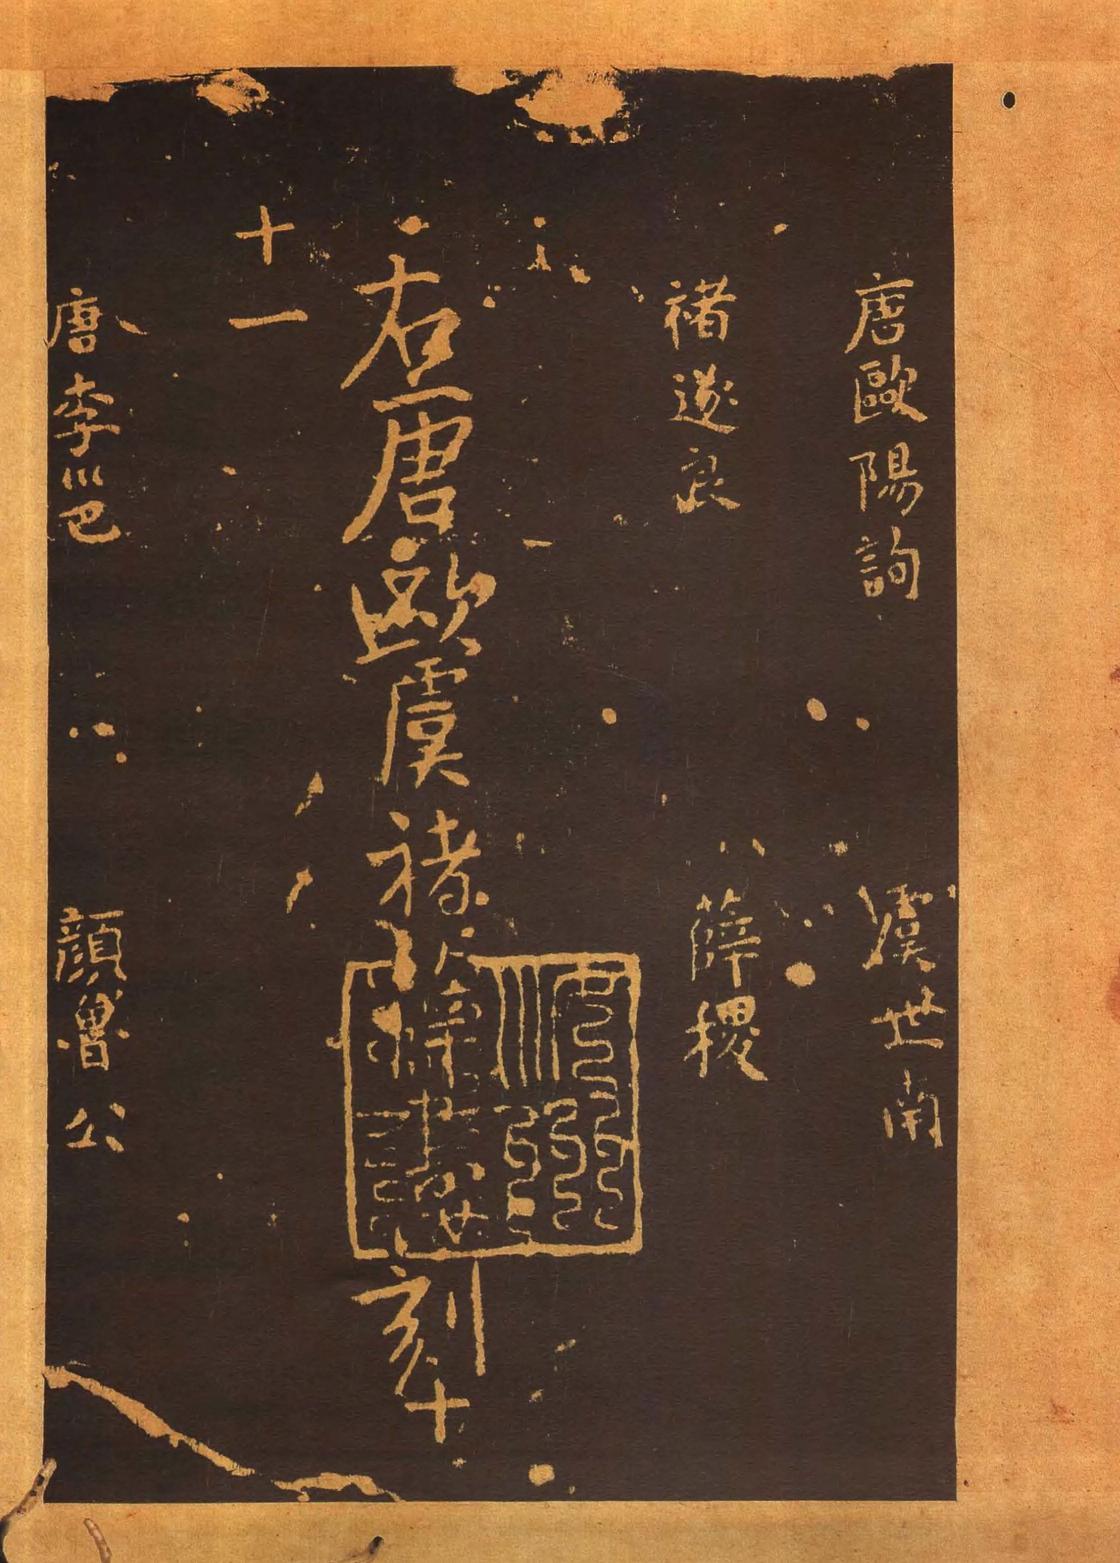 唐歐陽詢 虞世南
褚遂良 薛稷
右唐歐虞褚薛 刻十
十一
唐李邕 顏魯公